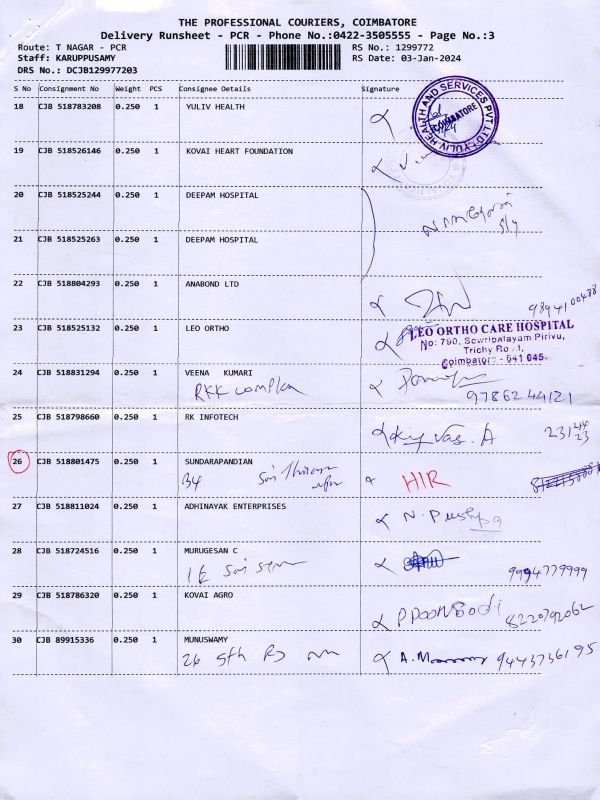 THE PROFESSIONAL COURIERS, COIMBATORE
Delivery Runsheet - PCR - Phone No.:0422-3505555 - Page No.:3
Route: T NAGAR - PCR
RS No.: 1299772
Staff: KARUPPUSAMY
RS Date: 03-Jan-2024
DRS No.: DCJB129977203
S No Consignment No Weight PCS Consignee Details Signature
18 CJB 518783208 0.250 1 YULIV HEALTH
YULIV HEALTH AND SERVICES PVT LTD
COIMBATORE
19 CJB 518526146 0.250 1 KOVAI HEART FOUNDATION
20 CJB 518525244 0.250 1 DEEPAM HOSPITAL
21 CJB 518525263 0.250 1 DEEPAM HOSPITAL
22 CJB 518804293 0.250 1 ANABOND LTD
9894100488
23 CJB 518525132 0.250 1 LEO ORTHO
LEO ORTHO CARE HOSPITAL
No: 790, Sowripalayam Pirivu,
Trichy Road,
Coimbatore - 641 045.
24 CJB 518831294 0.250 1 VEENA KUMARI
RKK complex
9786244121
25 CJB 518798660 0.250 1 RK INFOTECH
26 CJB 518801475 0.250 1 SUNDARAPANDIAN
34
HIR
27 CJB 518811024 0.250 1 ADHINAYAK ENTERPRISES
N. Pushpa
28 CJB 518724516 0.250 1 MURUGESAN C
9994779999
29 CJB 518786320 0.250 1 KOVAI AGRO
8220792062
30 CJB 89915336 0.250 1 MUNUSWAMY
26 5th
9443736195